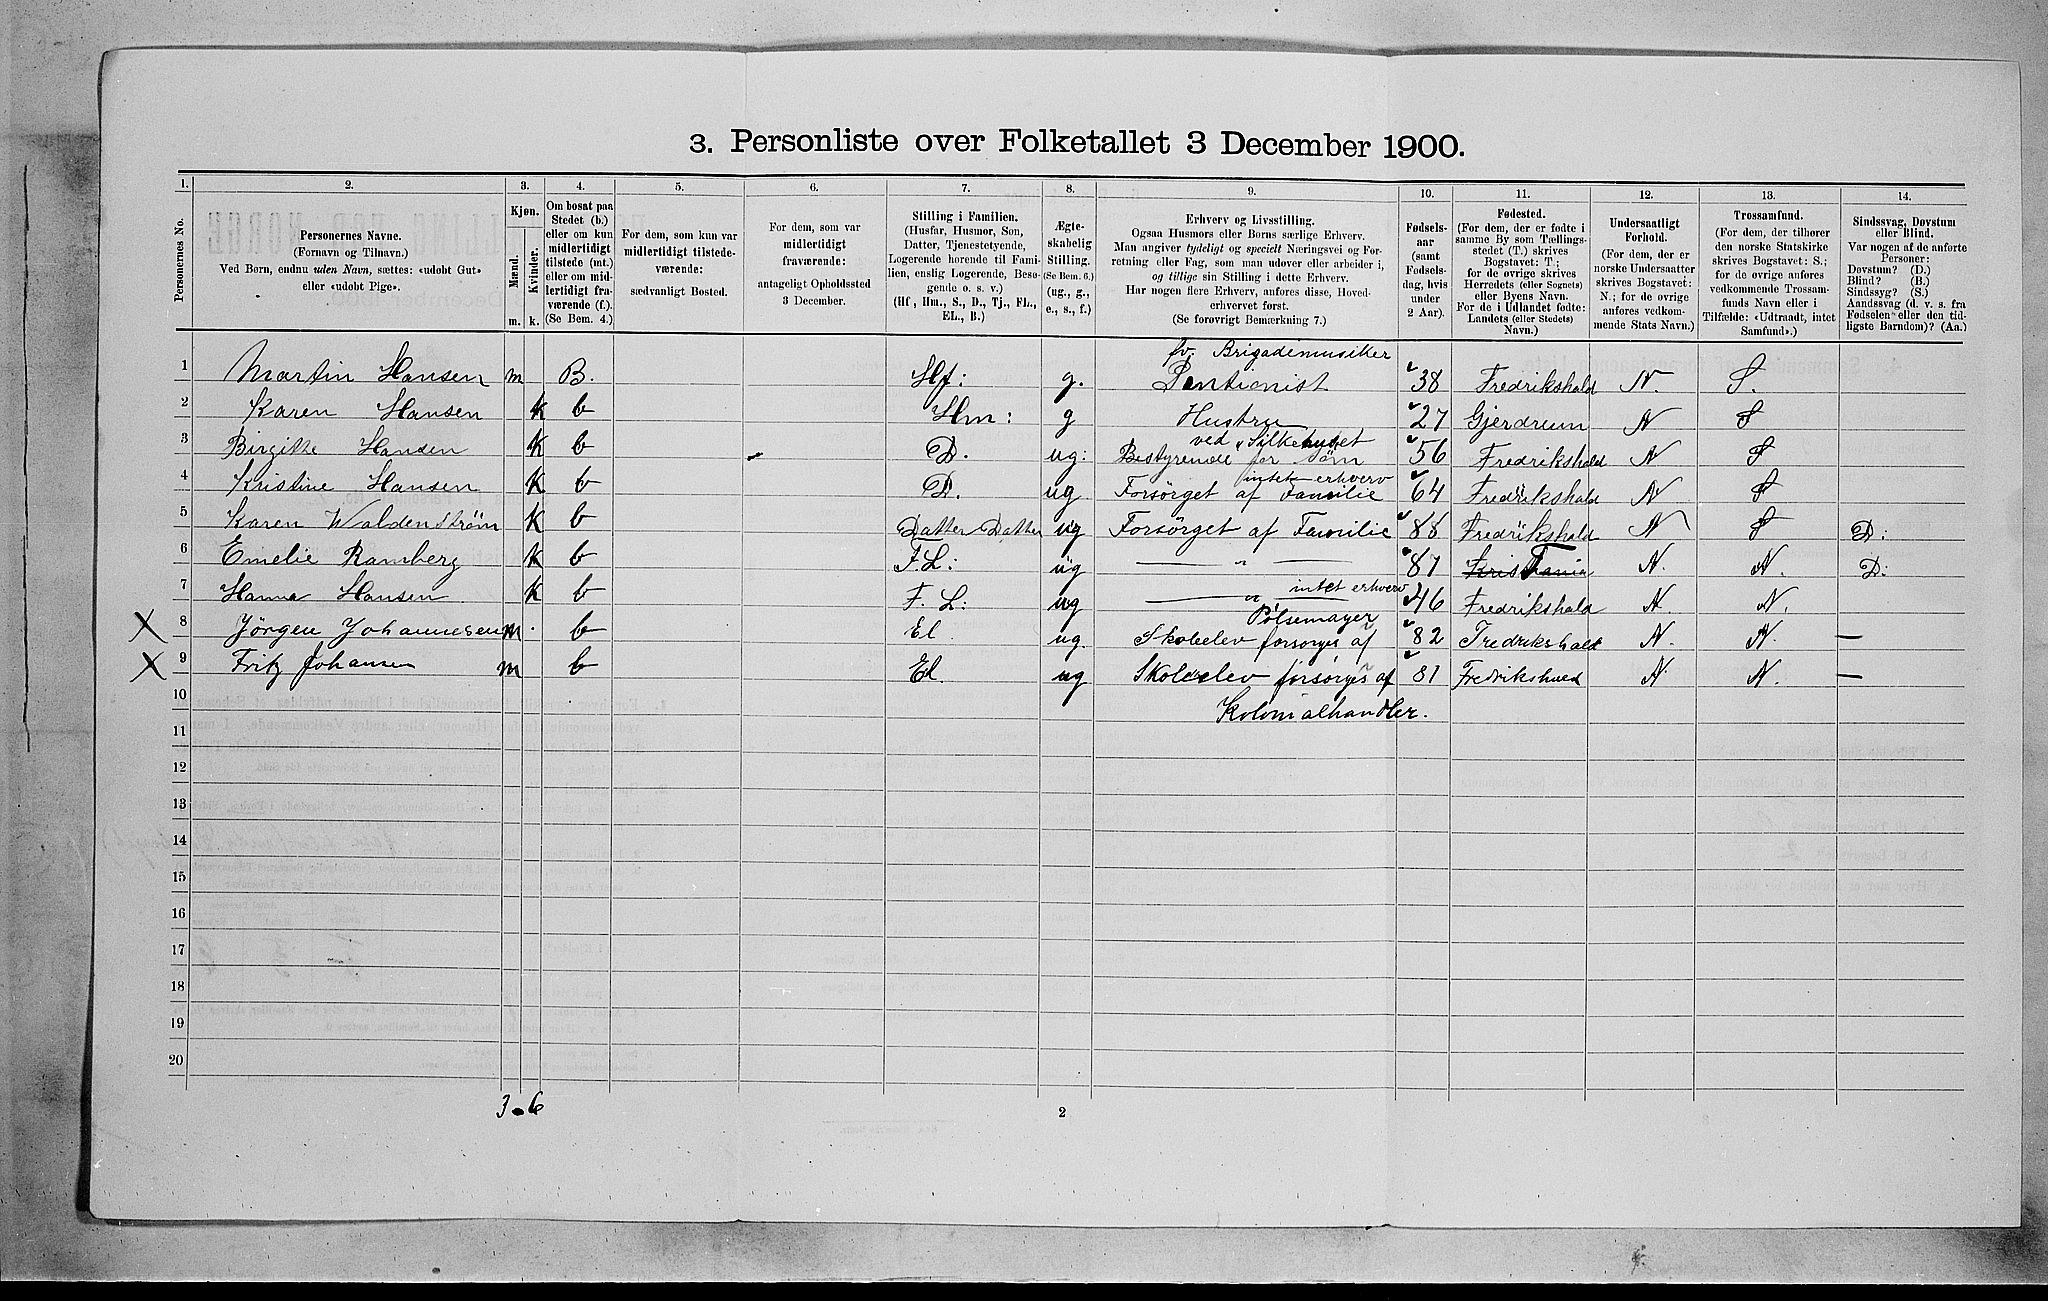 3. Personliste over Folketallet 3 December 1900.
1. 2. 3. 4. 5. 6. 7. 8. 9. 10. 11. 12. 13. 14.
Personernes No.
Personernes Navne.
(Fornavn og Tilnavn.)
Ved Børn, endnu uden Navn, sættes: «udøbt Gut»
eller «udøbt Pige».
Kjøn.
Mænd.
Kvinder.
m. k.
Om bosat paa
Stedet (b.)
eller om kun
midlertidigt
tilstede (mt.)
eller om mid-
lertidigt fra-
værende (f.).
(Se Bem. 4.)
For dem, som kun var
midlertidigt tilstede-
værende:
sædvanligt Bosted.
For dem, som var
midlertidigt
fraværende:
antageligt Opholdssted
3 December.
Stilling i Familien.
(Husfar, Husmor, Søn,
Datter, Tjenestetyende,
Logerende hørende til Fami-
lien, enslig Logerende, Besø-
gende o. s. v.)
(Hf, Hm., S., D., Tj., FL.,
EL., B.)
Ægte-
skabelig
Stilling.
(Se Bem. 6.)
(ug., g.,
e., s., f.)
Erhverv og Livsstilling.
Ogsaa Husmors eller Børns særlige Erhverv.
Man angiver tydeligt og specielt Næringsvei og For-
retning eller Fag, som man udøver eller arbeider i,
og tillige sin Stilling i dette Erhverv.
Har nogen flere Erhverv, anføres disse, Hoved-
erhvervet først.
(Se forøvrigt Bemærkning 7.)
Fødsels-
aar
(samt
Fødsels-
dag, hvis
under
2 Aar).
Fødested.
(For dem, der er fødte i
samme By som Tællings-
stedet (T.) skrives
Bogstavet: T.;
for de øvrige skrives
Herredets (eller Sognets)
eller Byens Navn.
For de i Udlandet fødte:
Landets (eller Stedets)
Navn.)
Undersaatligt
Forhold.
(For dem, der er
norske Undersaatter
skrives Bogstavet:
N.; for de øvrige
anføres vedkom-
mende Stats Navn.)
Trossamfund.
(For dem, der tilhører
den norske Statskirke
skrives Bogstavet: S.;
for de øvrige anføres
vedkommende Trossam-
funds Navn eller i
Tilfælde: «Udtraadt, intet
Samfund».)
Sindssvag, Døvstum
eller Blind.
Var nogen af de anførte
Personer:
Døvstum? (D.)
Blind? (B.)
Sindssyg? (S.)
Aandssvag (d. v. s. fra
Fødselen eller den tid-
ligste Barndom)? (Aa.)
fv. Brigademusiker
1 Martin Hansen m B. Hf: g. Pentionist 38 Fredrikshald N. S.
2 Karen Hansen K b Hm: g Hustru 27 Gjerdrum N S
ved Silkehuset
3 Birgitte Hansen K b D. ug: Bestyrende for Søm 56 Fredrikshald N S
intet erhverv
4 Kristine Hansen K b D. ug Forsørget af Familie 64 Fredrikshald N S
5 Karen Waldenstrøm K b Datter Datter ug Forsørget af Familie 88 Fredrikshald N S D:
6 Emelie Ramberg K b F. L: ug — " — 87 Kristiania T N. N. D:
intet erhverv
7 Hanna Hansen K b F. L: ug — " — 46 Fredrikshald N. N.
Pølsemager
X 8 Jörgen Johannesen m. b El. ug. Skoleelev forsørges af 82 Fredrikshald N. N. —
X 9 Fritz Johansen m b El. ug Skoleelev forsørges af 81 Fredrikshald N N. —
10 Kolonialhandler.
11
12
13
14
15
16
17
18
19
20
3 - 6
2